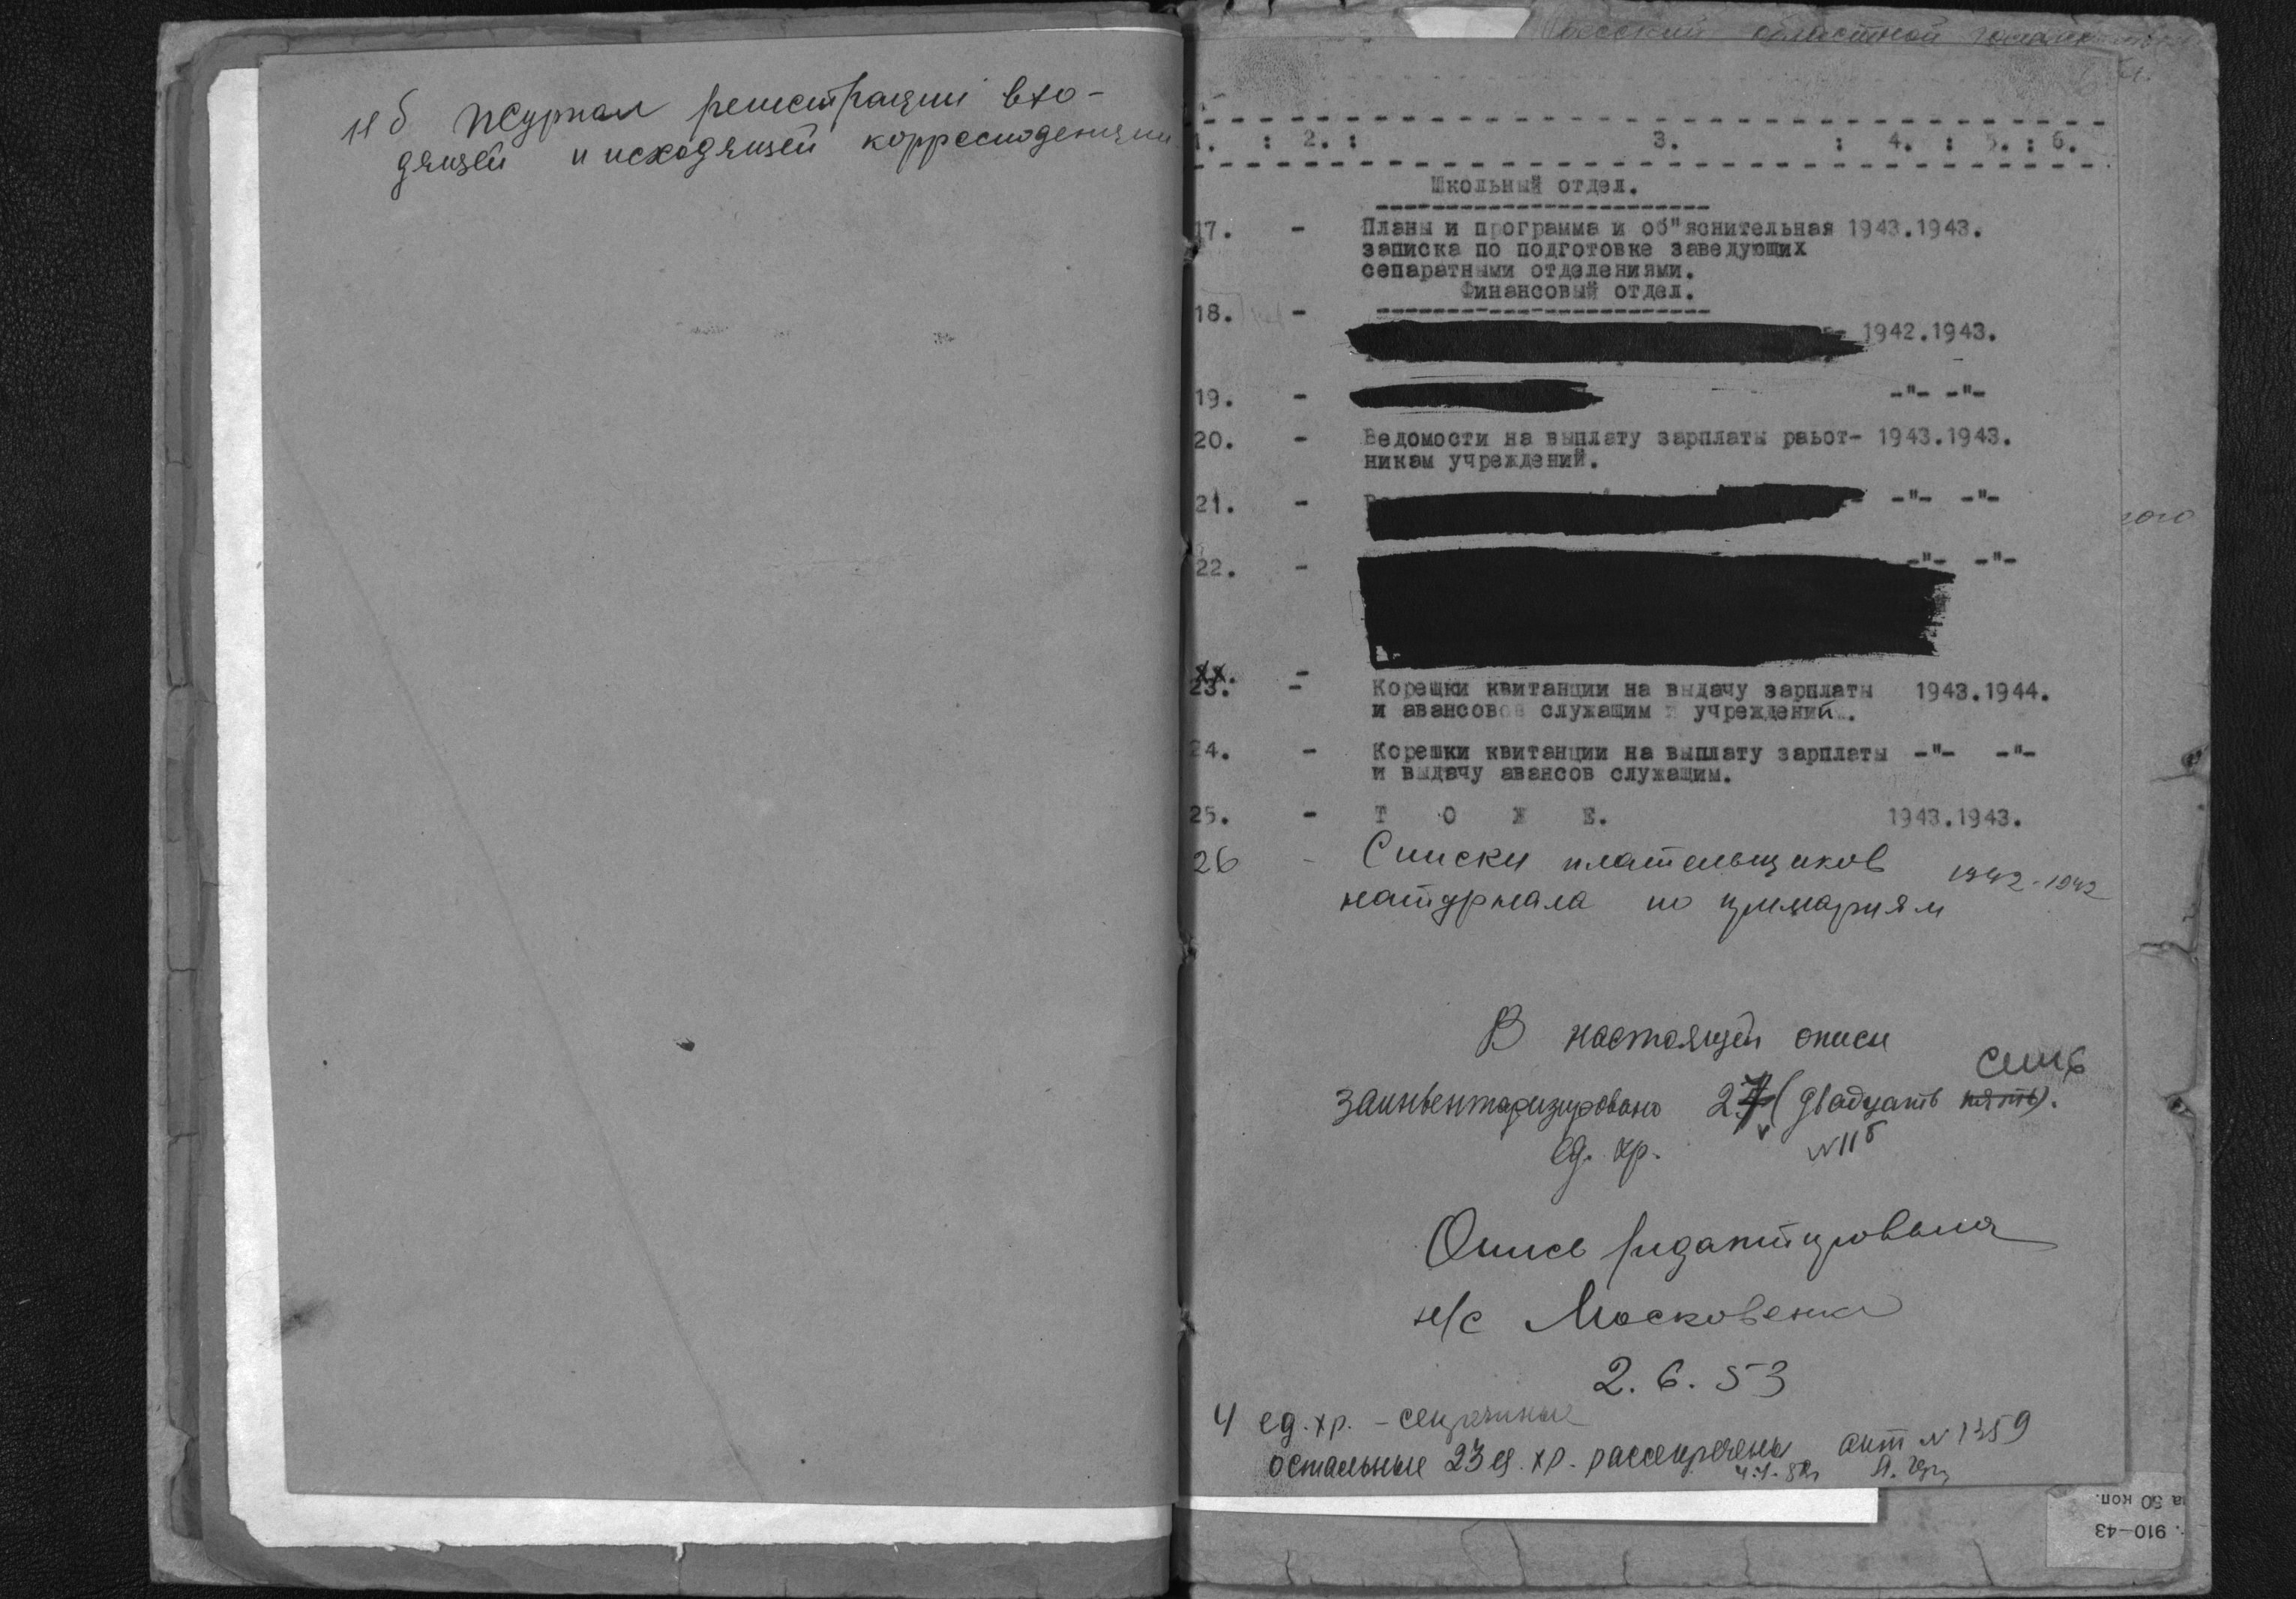 11б Журнал регистрации вхо-
дящей и исходящей корреспонденции
областной
1. : 2. : 3. : 4. : 5. : 6.
Школьный отдел.
17. - Планы и программа и об"яснительная 1943.1943.
записка по подготовке заведующих
сепаратными отделениями.
Финансовый отдел.
18. - 1942.1943.
19. - -"- -"-
20. - Ведомости на выплату зарплаты раьот- 1943.1943.
никам учреждений.
21. - -"- -"-
22. - -"- -"-
хх. -
23. - Корещки квитанции на выдачу зарплаты 1943.1944.
и авансов служащим учреждений.
24. - Корешки квитанции на выплату зарплаты -"- -"-
и выдачу авансов служащим.
25. - Т О Ж Е. 1943.1943.
26 - Списки плательщиков 1942-1942
натурнала по примариям
В настоящей описи
семь
заинвентаризировано 27 (двадцать пять).
ед. хр. №11б
Опись редактировала
н/с Московенка
2.6.53
4 ед. хр. - секретные
остальные 23 ед. хр. рассекречены акт №1359
ого
на 50 коп.
910-43